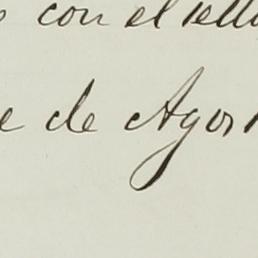 con el sello
de Agos